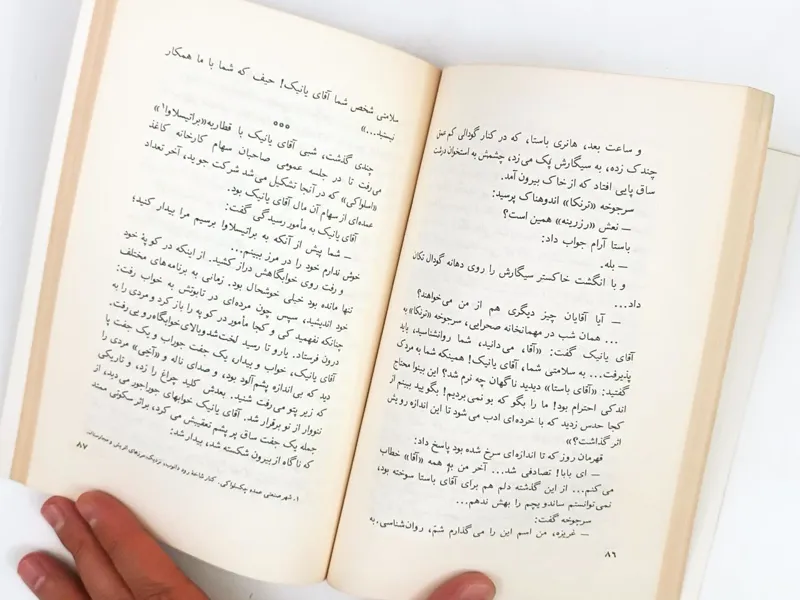 و ساعت بعد، هانری باستا، که در کنار گودالی کم عمق
چندک زده، به سیگارش پک می‌زد، چشمش به استخوان درشت
ساق پایی افتاد که از خاک بیرون آمد.
سرجوخه «ترنکا» اندوهناک پرسید:
– نعش «رزرینه» همین است؟
باستا آرام جواب داد:
– بله.
و با انگشت خاکستر سیگارش را روی دهانه گودال تکان
داد...
– آیا آقایان چیز دیگری هم از من می‌خواهند؟
... همان شب در مهمانخانه صحرایی، سرجوخه «ترنکا» به
آقای یانیک گفت: «آقا، می‌دانید، شما روانشناسید، باید
پذیرفت... به سلامتی شما، آقای یانیک! همینکه شما به مردک
گفتید: «آقای باستا» دیدید ناگهان چه نرم شد؟ این بینوا محتاج
اندکی احترام بود! ما را بگو که بو نمی‌بردیم! بگویید ببینم از
کجا حدس زدید که با خرده‌ای ادب می‌شود تا این اندازه رویش
اثر گذاشت؟»
قهرمان روز که تا اندازه‌ای سرخ شده بود پاسخ داد:
– ای بابا! تصادفی شد... آخر من به همه «آقا» خطاب
می‌کنم... از این گذشته دلم هم برای آقای باستا سوخته بود،
نمی‌توانستم ساندو یچم را بهش ندهم...
سرجوخه گفت:
– غریزه، من اسم این را می‌گذارم شمّ، روان‌شناسی. به
۸۶
سلامتی شخص شما آقای یانیک! حیف که شما با ما همکار
نیستید...»
***
چندی گذشت، شبی آقای یانیک با قطار به «براتیسلاوا۱»
می‌رفت تا در جلسه عمومی صاحبان سهام کارخانه کاغذ
«اسلواکی» که در آنجا تشکیل می‌شد شرکت جوید، آخر تعداد
عمده‌ای از سهام آن مال آقای یانیک بود.
آقای یانیک به مأمور رسیدگی گفت:
– شما پیش از آنکه به براتیسلاوا برسیم مرا بیدار کنید؛
خوش ندارم خود را در مرز ببینم...
و رفت روی خوابگاهش دراز کشید. از اینکه در کوپۀ خود
تنها مانده بود خیلی خوشحال بود. زمانی به برنامه‌های مختلف
خود اندیشید، سپس چون مرده‌ای در تابوتش به خواب رفت:
چنانکه نفهمید کی و کجا مأمور در کوپه را باز کرد و مردی را به
درون فرستاد. یارو تا رسید لخت شد و بالای خوابگاه رویی رفت.
آقای یانیک، خواب و بیدار، یک جفت جوراب و یک جفت پا
دید که بی‌اندازه پشم‌آلود بود، و صدای ناله و «آنچی» مردی را
که زیر پتو می‌رفت شنید. بعدش کلید چراغ را زد، و تاریکی
ننووار از نو برقرار شد. آقای یانیک خوابهای جوراجور می‌دید، از
جمله یک جفت ساق پر پشم تعقیبش می‌کرد، براثر سکوتی ممتد
که ناگاه از بیرون شکسته شد، بیدار شد:
۱. شهر صنعتی عمده چکسلواکی، کنار شاخۀ رود دانوب، نزدیک مرزهای اتریش و مجارستان.
۸۷